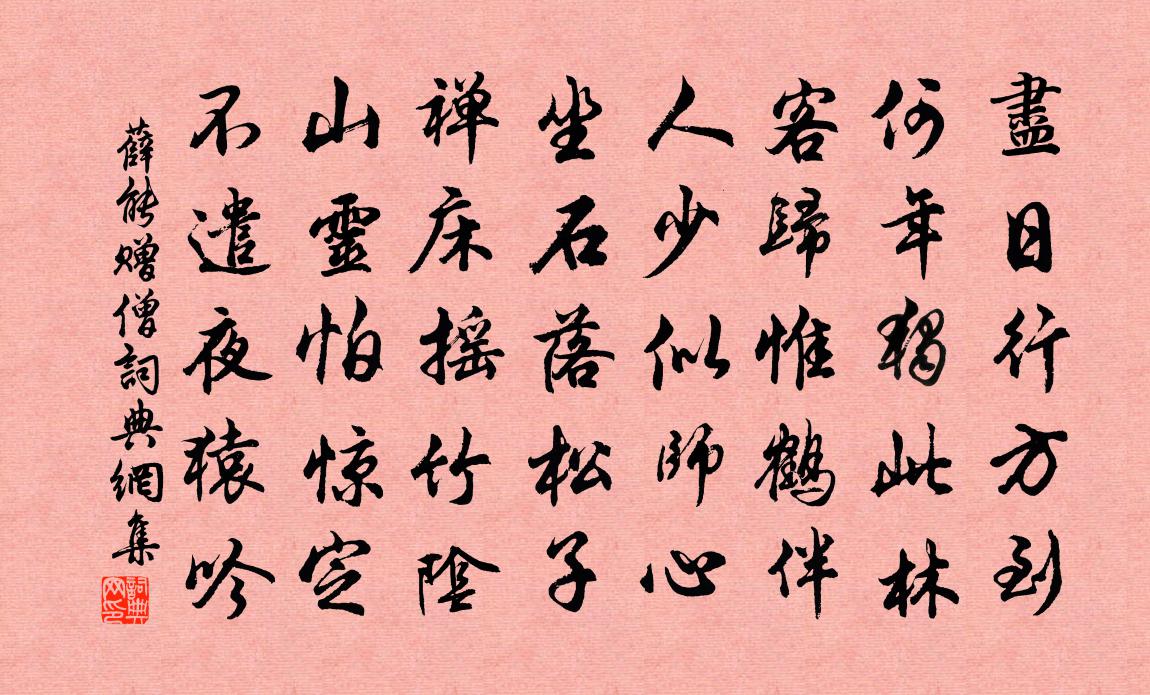 盡日行方到
何年獨此林
客歸惟鶴伴
人少似師心
坐石落松子
禅床摇竹陰
山靈怕惊定
不遣夜猿吟
薛能赠僧詞典網集
詞典网印